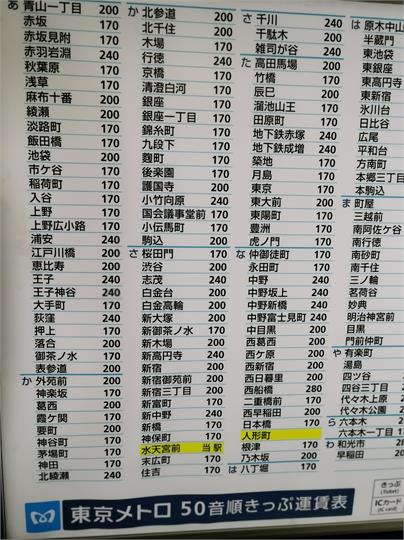 あ 青山一丁目 200
赤坂 170
赤坂見附 170
赤羽岩淵 240
秋葉原 170
浅草 170
麻布十番 200
綾瀬 200
淡路町 170
飯田橋 170
池袋 200
市ケ谷 170
稲荷町 170
入谷 170
上野 170
上野広小路 170
浦安 240
江戸川橋 200
恵比寿 200
王子 240
王子神谷 240
大手町 170
荻窪 240
押上 170
落合 200
御茶ノ水 170
表参道 200
か 外苑前 200
神楽坂 170
葛西 200
霞ケ関 170
要町 200
神谷町 170
茅場町 170
神田 170
北綾瀬 240
か 北参道 200
北千住 200
木場 170
行徳 240
京橋 170
清澄白河 170
銀座 170
銀座一丁目 170
錦糸町 170
九段下 170
麴町 170
後楽園 170
護国寺 200
小竹向原 240
国会議事堂前 170
小伝馬町 170
駒込 200
さ 桜田門 170
渋谷 200
志茂 240
白金台 200
白金高輪 200
新大塚 200
新御茶ノ水 170
新木場 200
新高円寺 240
新宿 200
新宿御苑前 200
新宿三丁目 200
新富町 170
新中野 240
新橋 170
神保町 170
水天宮前 当駅
末広町 170
住吉 170
さ 千川 240
千駄木 200
雑司が谷 240
た 高田馬場 200
竹橋 170
辰巳 200
溜池山王 170
田原町 170
地下鉄赤塚 240
地下鉄成増 240
築地 170
月島 170
東京 170
東大前 200
東陽町 170
豊洲 170
虎ノ門 170
な 仲御徒町 170
永田町 170
中野 240
中野坂上 240
中野新橋 240
中野富士見町 240
中目黒 200
西葛西 200
西ケ原 200
西新宿 200
西日暮里 200
西船橋 280
二重橋前 170
西早稲田 200
日本橋 170
人形町
根津
乃木坂 200
は 八丁堀 170
は 原木中山
半蔵門
東池袋
東銀座
東高円寺
東新宿
氷川台
日比谷
広尾
平和台
方南町
本郷三丁目
本駒込
ま 町屋
三越前
南阿佐ケ谷
南行徳
南砂町
南千住
三ノ輪
茗荷谷
妙典
明治神宮前
目黒
門前仲町
や 有楽町
湯島
四ツ谷
四谷三丁目
代々木上原
代々木公園
ら 六本木
六本木一丁目
わ 和光市
早稲田
きっぷ
(Ticket)
ICカード
(IC card)
東京メトロ 50音順きっぷ運賃表